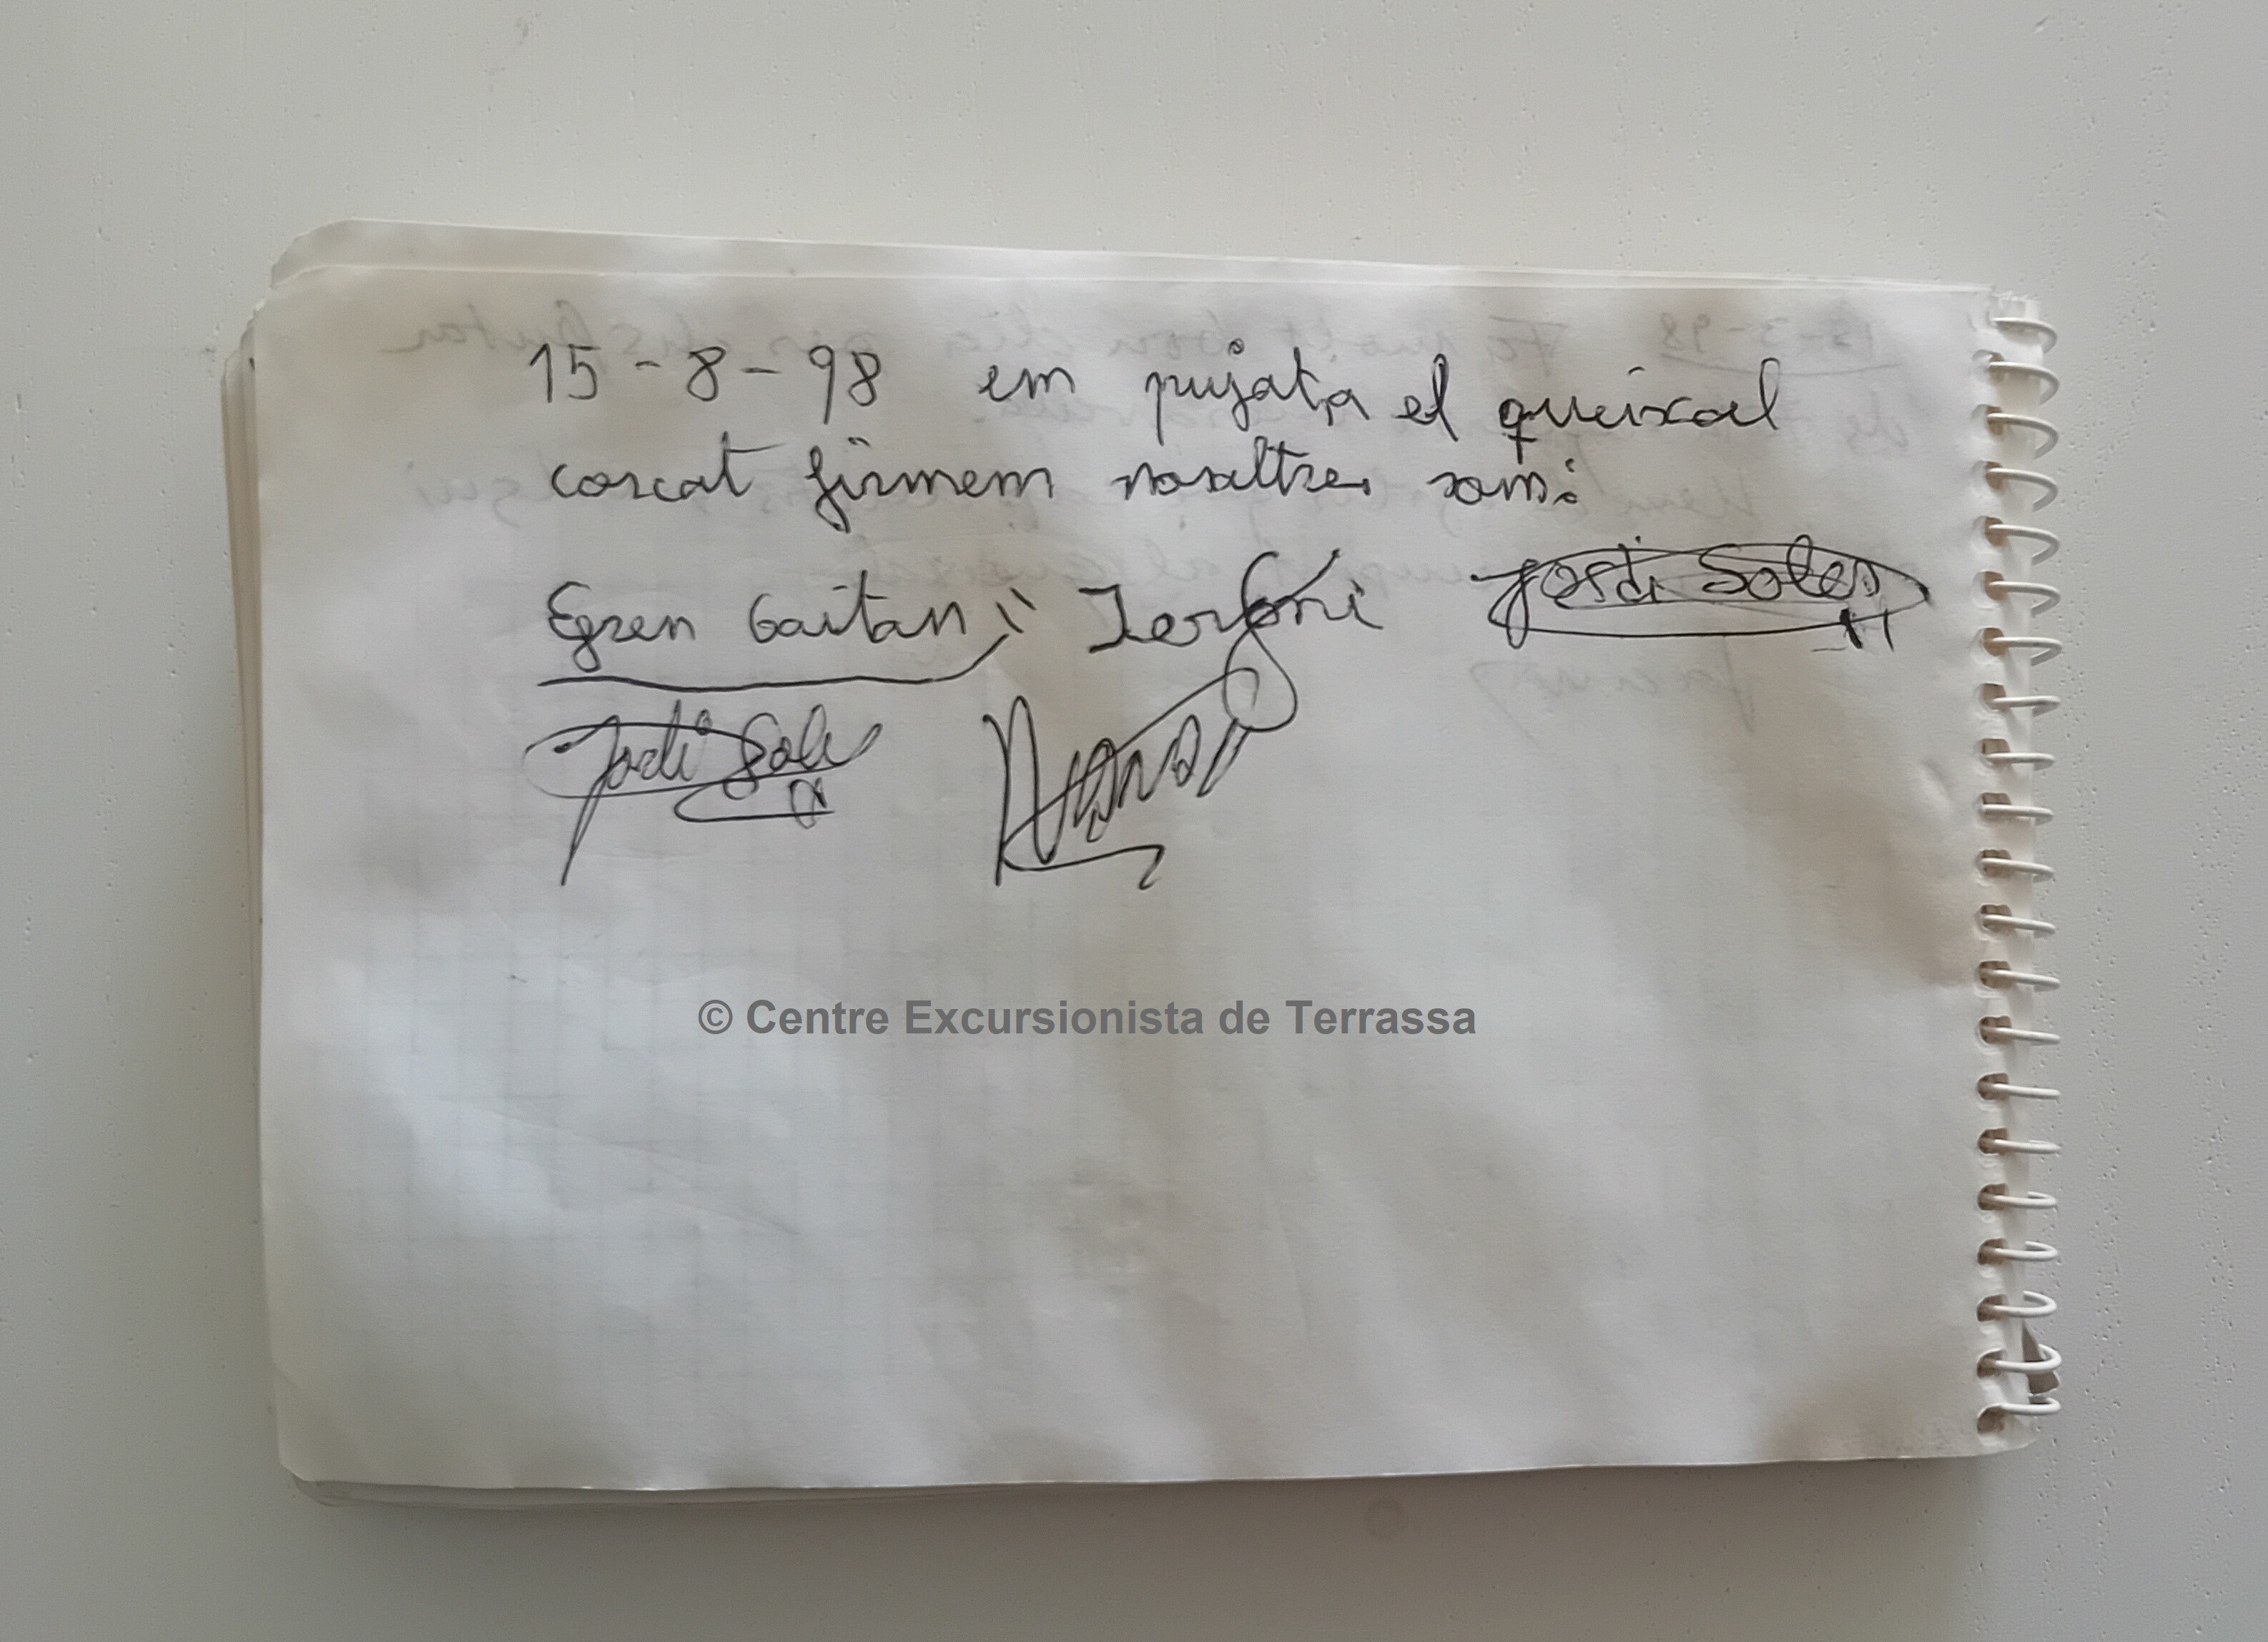 15-8-98 em pujata el queixal
corcat firmem nosaltres som:
Egren Gaitan; Jordi Soler
Jordi Sole
© Centre Excursionista de Terrassa